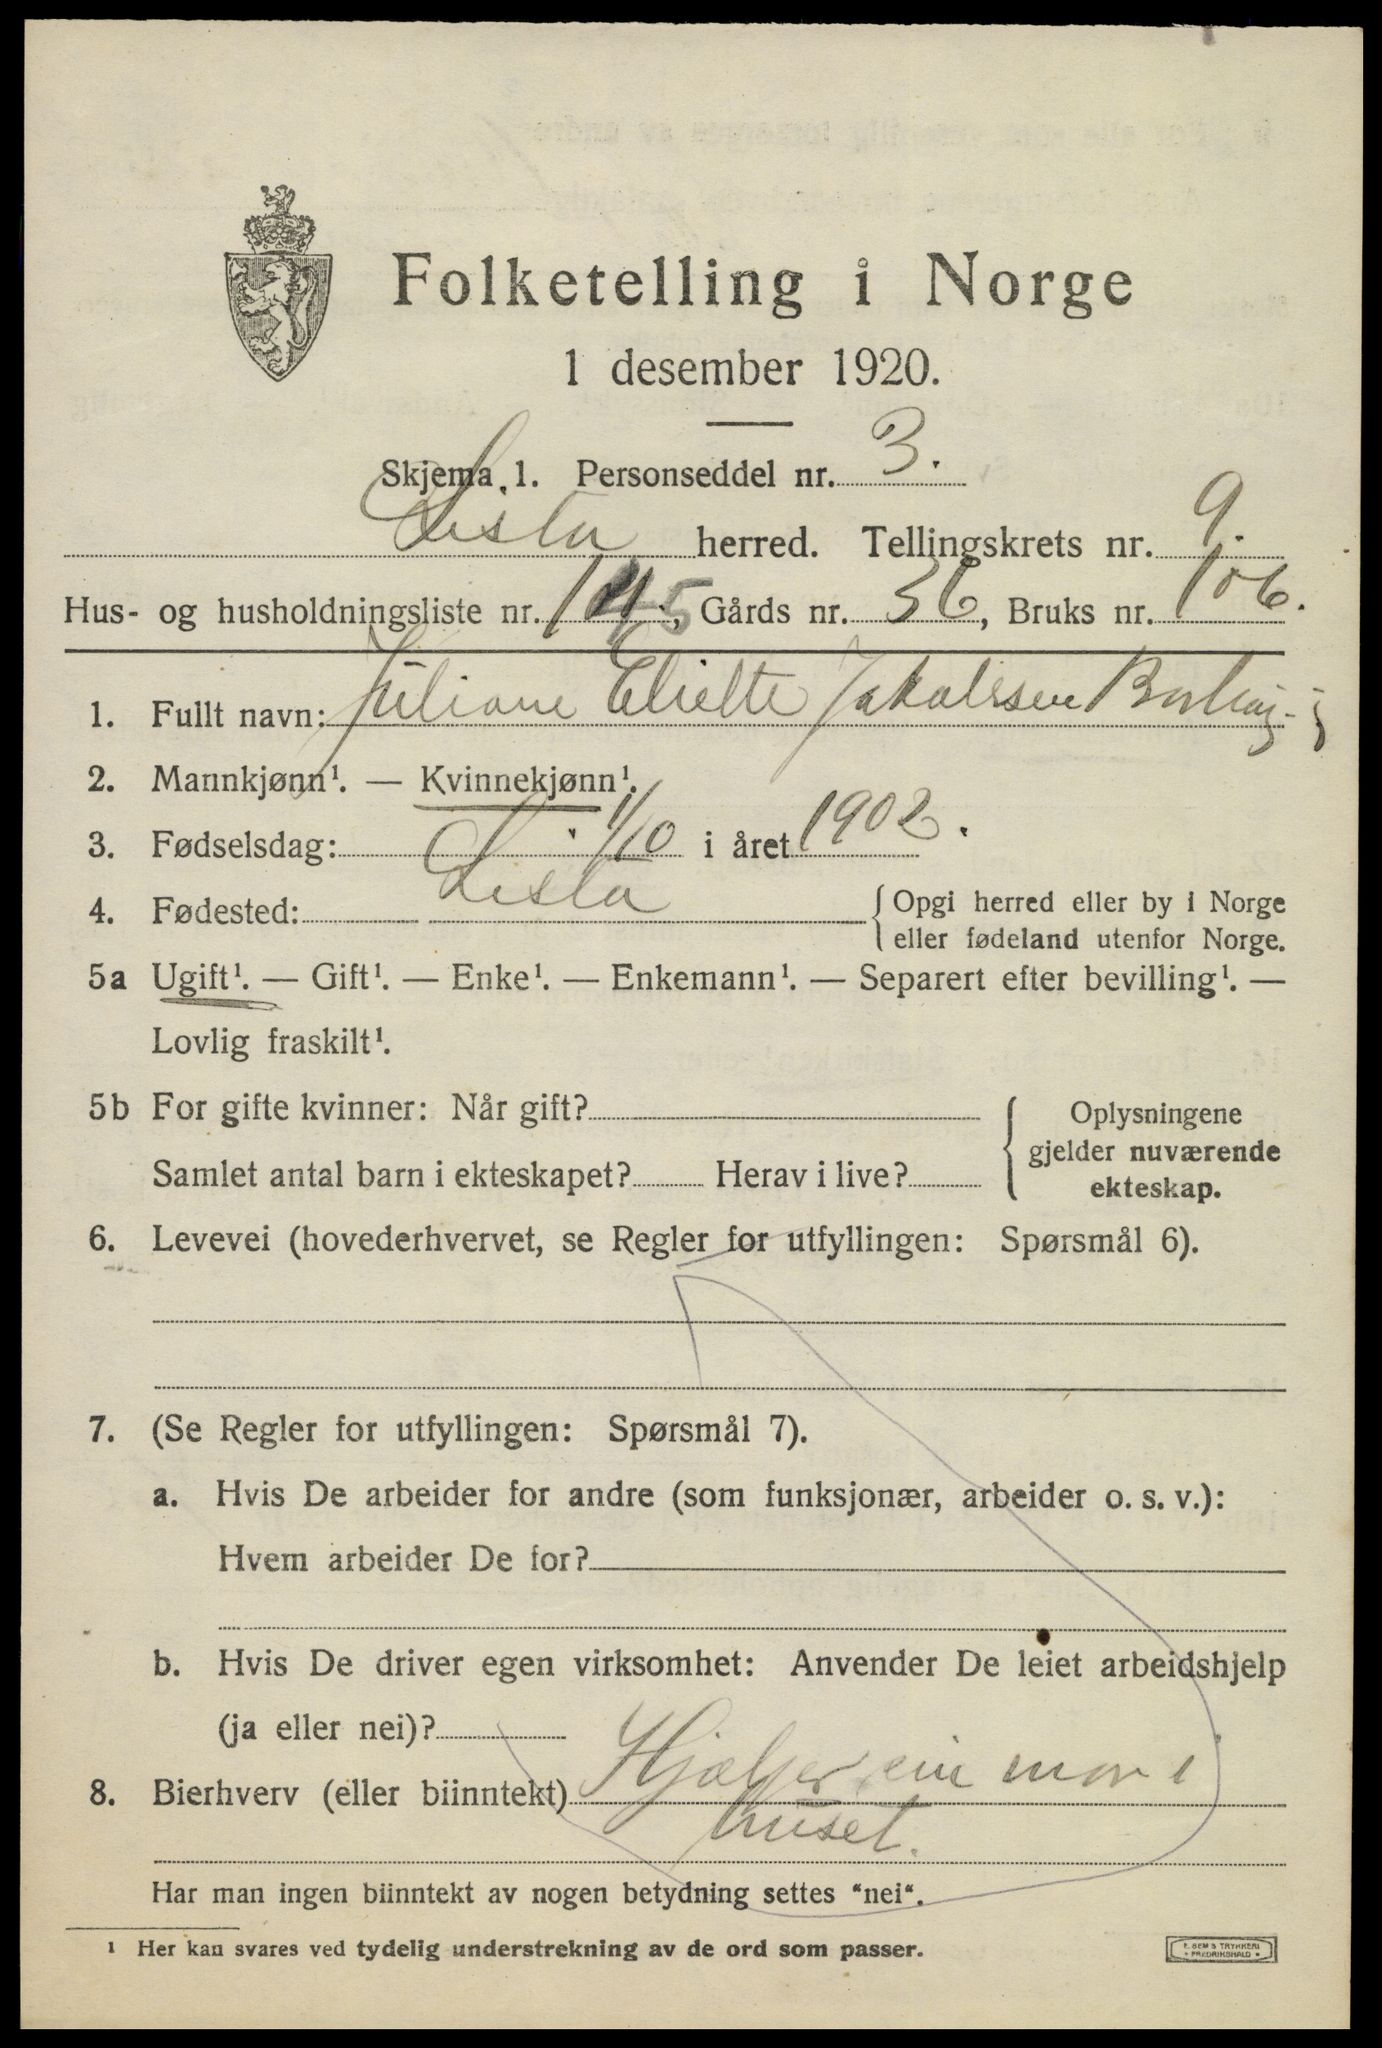 Folketelling i Norge
1 desember 1920.
Skjema 1. Personseddel nr. 3.
Lista herred. Tellingskrets nr. 9.
Hus- og husholdningsliste nr. 145, Gårds nr. 36, Bruks nr. 106.
1. Fullt navn: Juliane Elielte Jakobsen
2. Mannkjønn¹. — Kvinnekjønn¹.
3. Fødselsdag: 1/10 i året 1902.
4. Fødested: Lista {Opgi herred eller by i Norge
eller fødeland utenfor Norge.
5a Ugift¹. — Gift¹. — Enke¹. — Enkemann¹. — Separert efter bevilling¹. —
Lovlig fraskilt¹.
5b For gifte kvinner: Når gift?
Samlet antal barn i ekteskapet? Herav i live?
Oplysningene
gjelder nuværende
ekteskap.
6. Levevei (hovederhvervet, se Regler for utfyllingen: Spørsmål 6).
7. (Se Regler for utfyllingen: Spørsmål 7).
a. Hvis De arbeider for andre (som funksjonær, arbeider o. s. v.):
Hvem arbeider De for?
b. Hvis De driver egen virksomhet: Anvender De leiet arbeidshjelp
(ja eller nei)?
8. Bierhverv (eller biinntekt) Hjælper sin mor i
huset.
Har man ingen biinntekt av nogen betydning settes "nei".
¹ Her kan svares ved tydelig understrekning av de ord som passer.
E. SEM'S TRYKKERI
FREDRIKSHALD